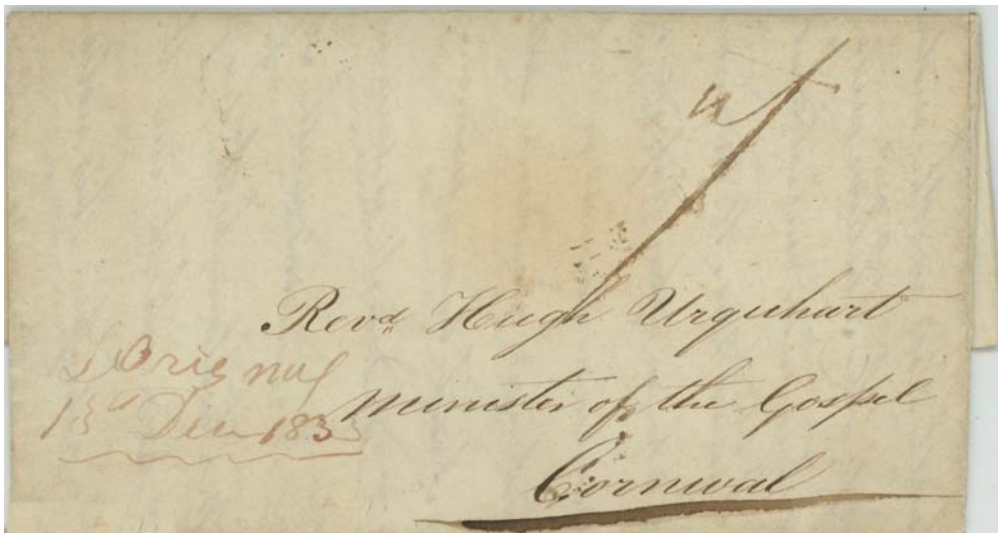 Revd. Hugh Urquhart
Minister of the Gospel
Cornwal
L'Orignal
13d Dec 1833